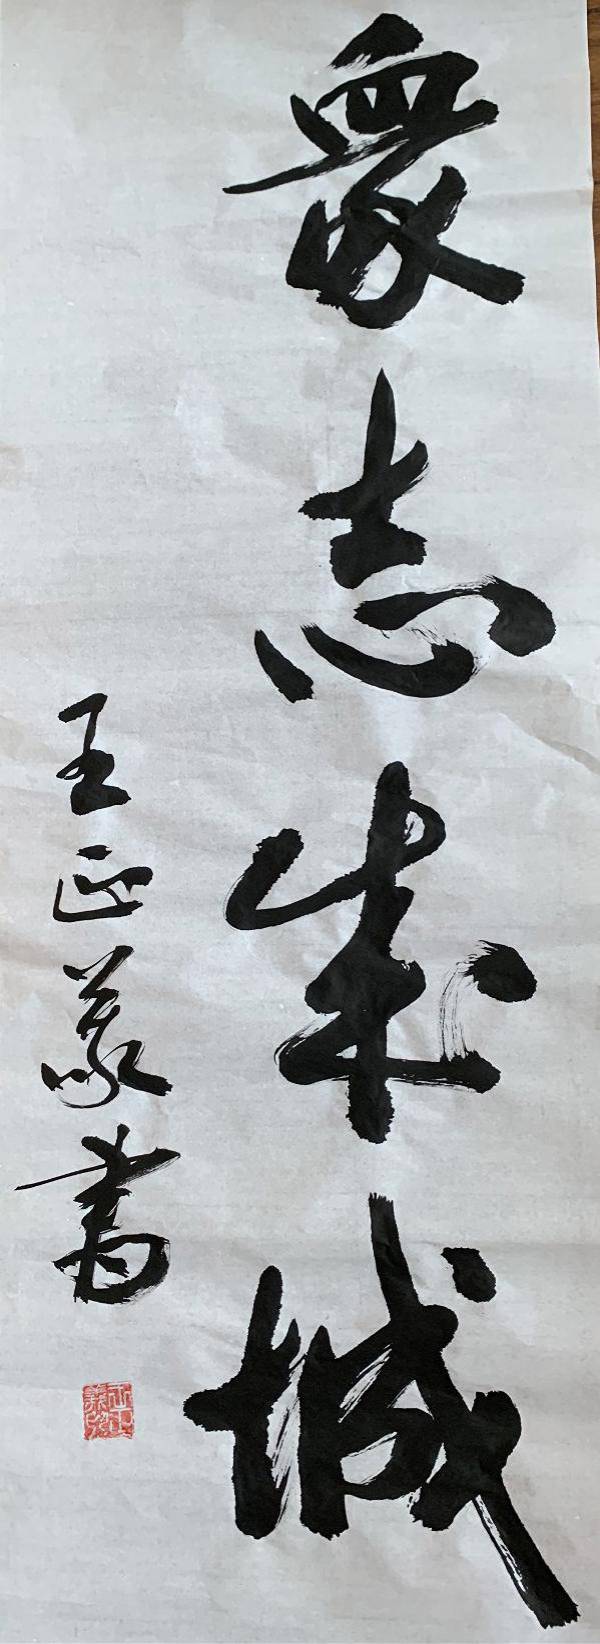 衆志成城
王正義書